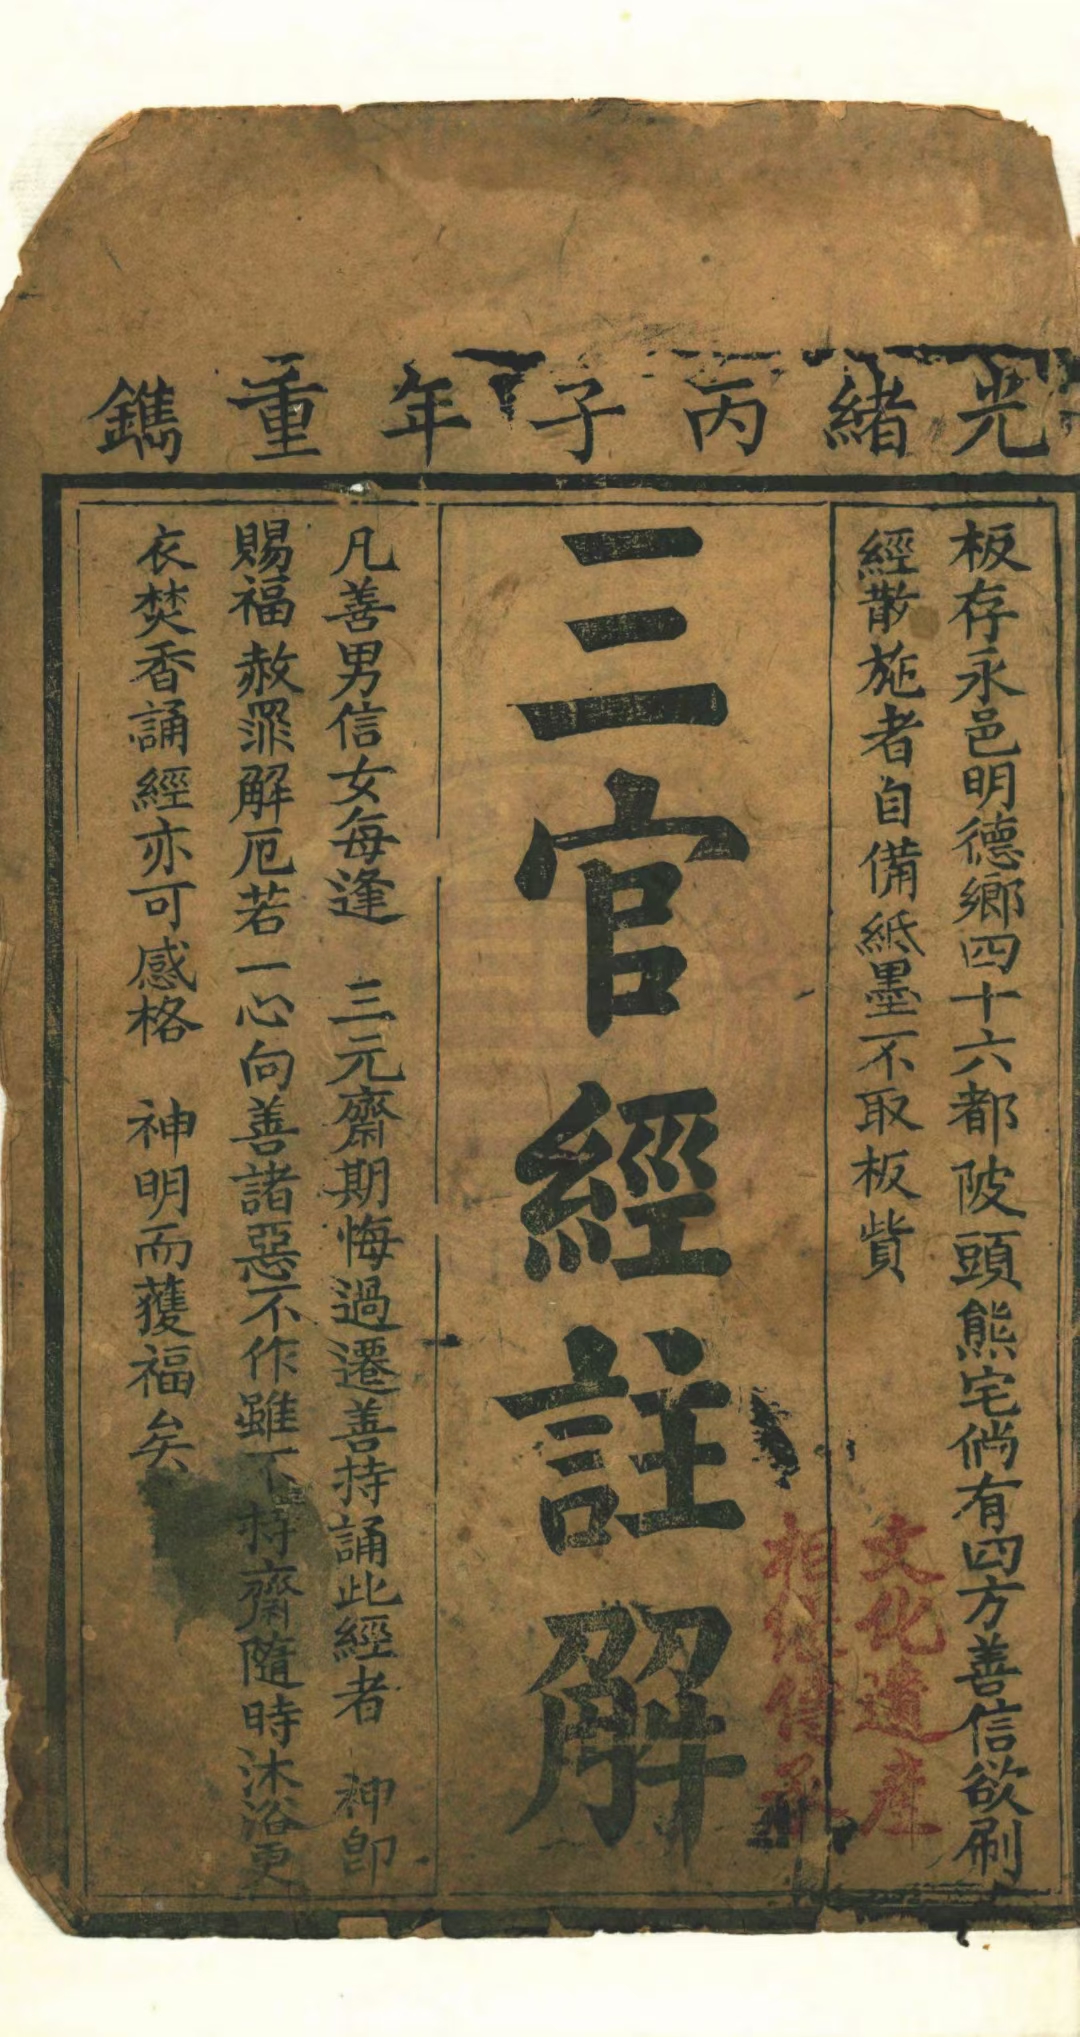 光緒丙子年重鐫
板存永邑明德鄉四十六都陂頭熊宅倘有四方善信欲刷
經散施者自備紙墨不取板貲
三官經註解
凡善男信女每逢 三元齋期悔過遷善持誦此經者 神即
賜福赦罪解厄若一心向善諸惡不作雖不持齋隨時沐浴更
衣焚香誦經亦可感格 神明而獲福矣
文化遗產
相继傳承